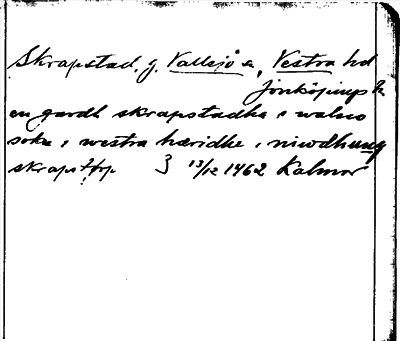 Skrapstad, g. Vallsjö sn, Vestra hd
Jönköpings l.
en gardh skrapstadha i walsio
sokn i westra hæridhe i niwdhung
skrapstorp 3 13/12 1462 Kalmar